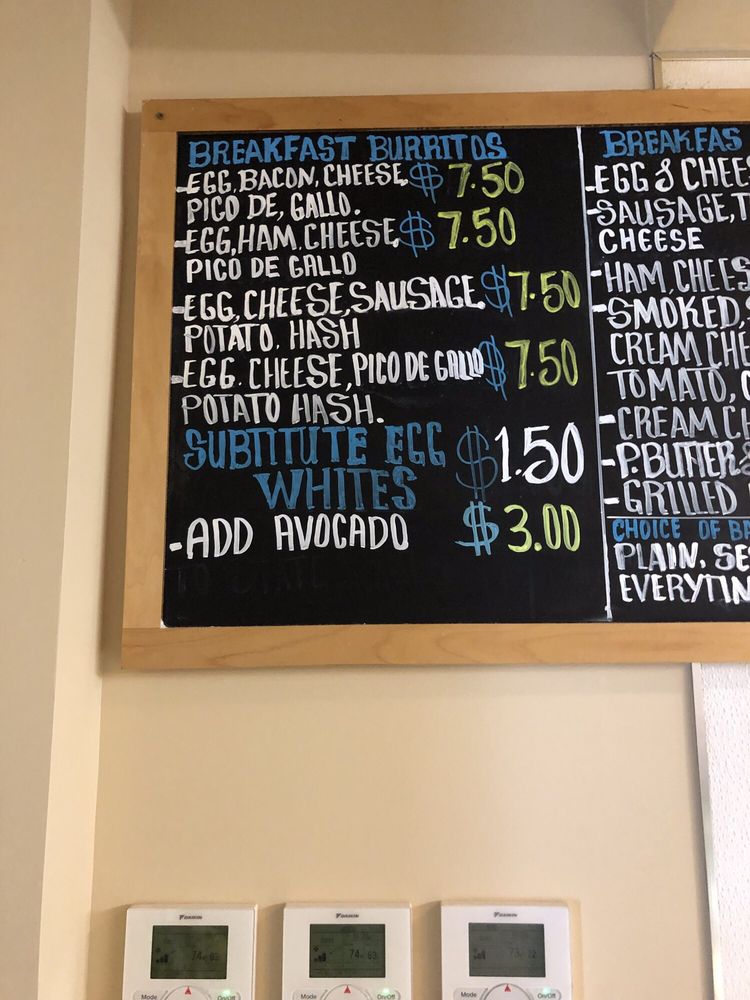 BREAKFAST BURRITOS
-EGG, BACON, CHEESE, $7.50
PICO DE, GALLO.
-EGG, HAM, CHEESE, $7.50
PICO DE GALLO
-EGG, CHEESE, SAUSAGE, $7.50
POTATO. HASH
-EGG. CHEESE, PICO DE GALLO $7.50
POTATO HASH.
SUBTITUTE EGG $1.50
WHITES
-ADD AVOCADO $3.00
BREAKFAS
-EGG & CHEES
-SAUSAGE, T
CHEESE
-HAM, CHEES
-SMOKED,
CREAM CHE
TOMATO, C
-CREAM CH
-P.BUTTER &
-GRILLED
CHOICE OF BA
PLAIN. SE
EVERYTIN
DAIKIN DAIKIN DAIKIN
74 74 73
Mode On/Off Mode On/Off Mode On/Off